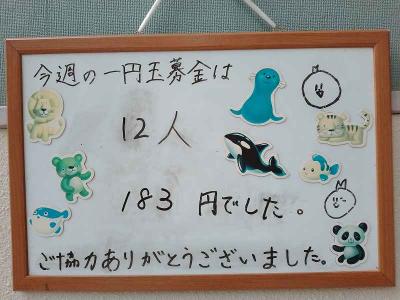 今週の一円玉募金は
12人
183 円でした。
ご協力ありがとうございました。